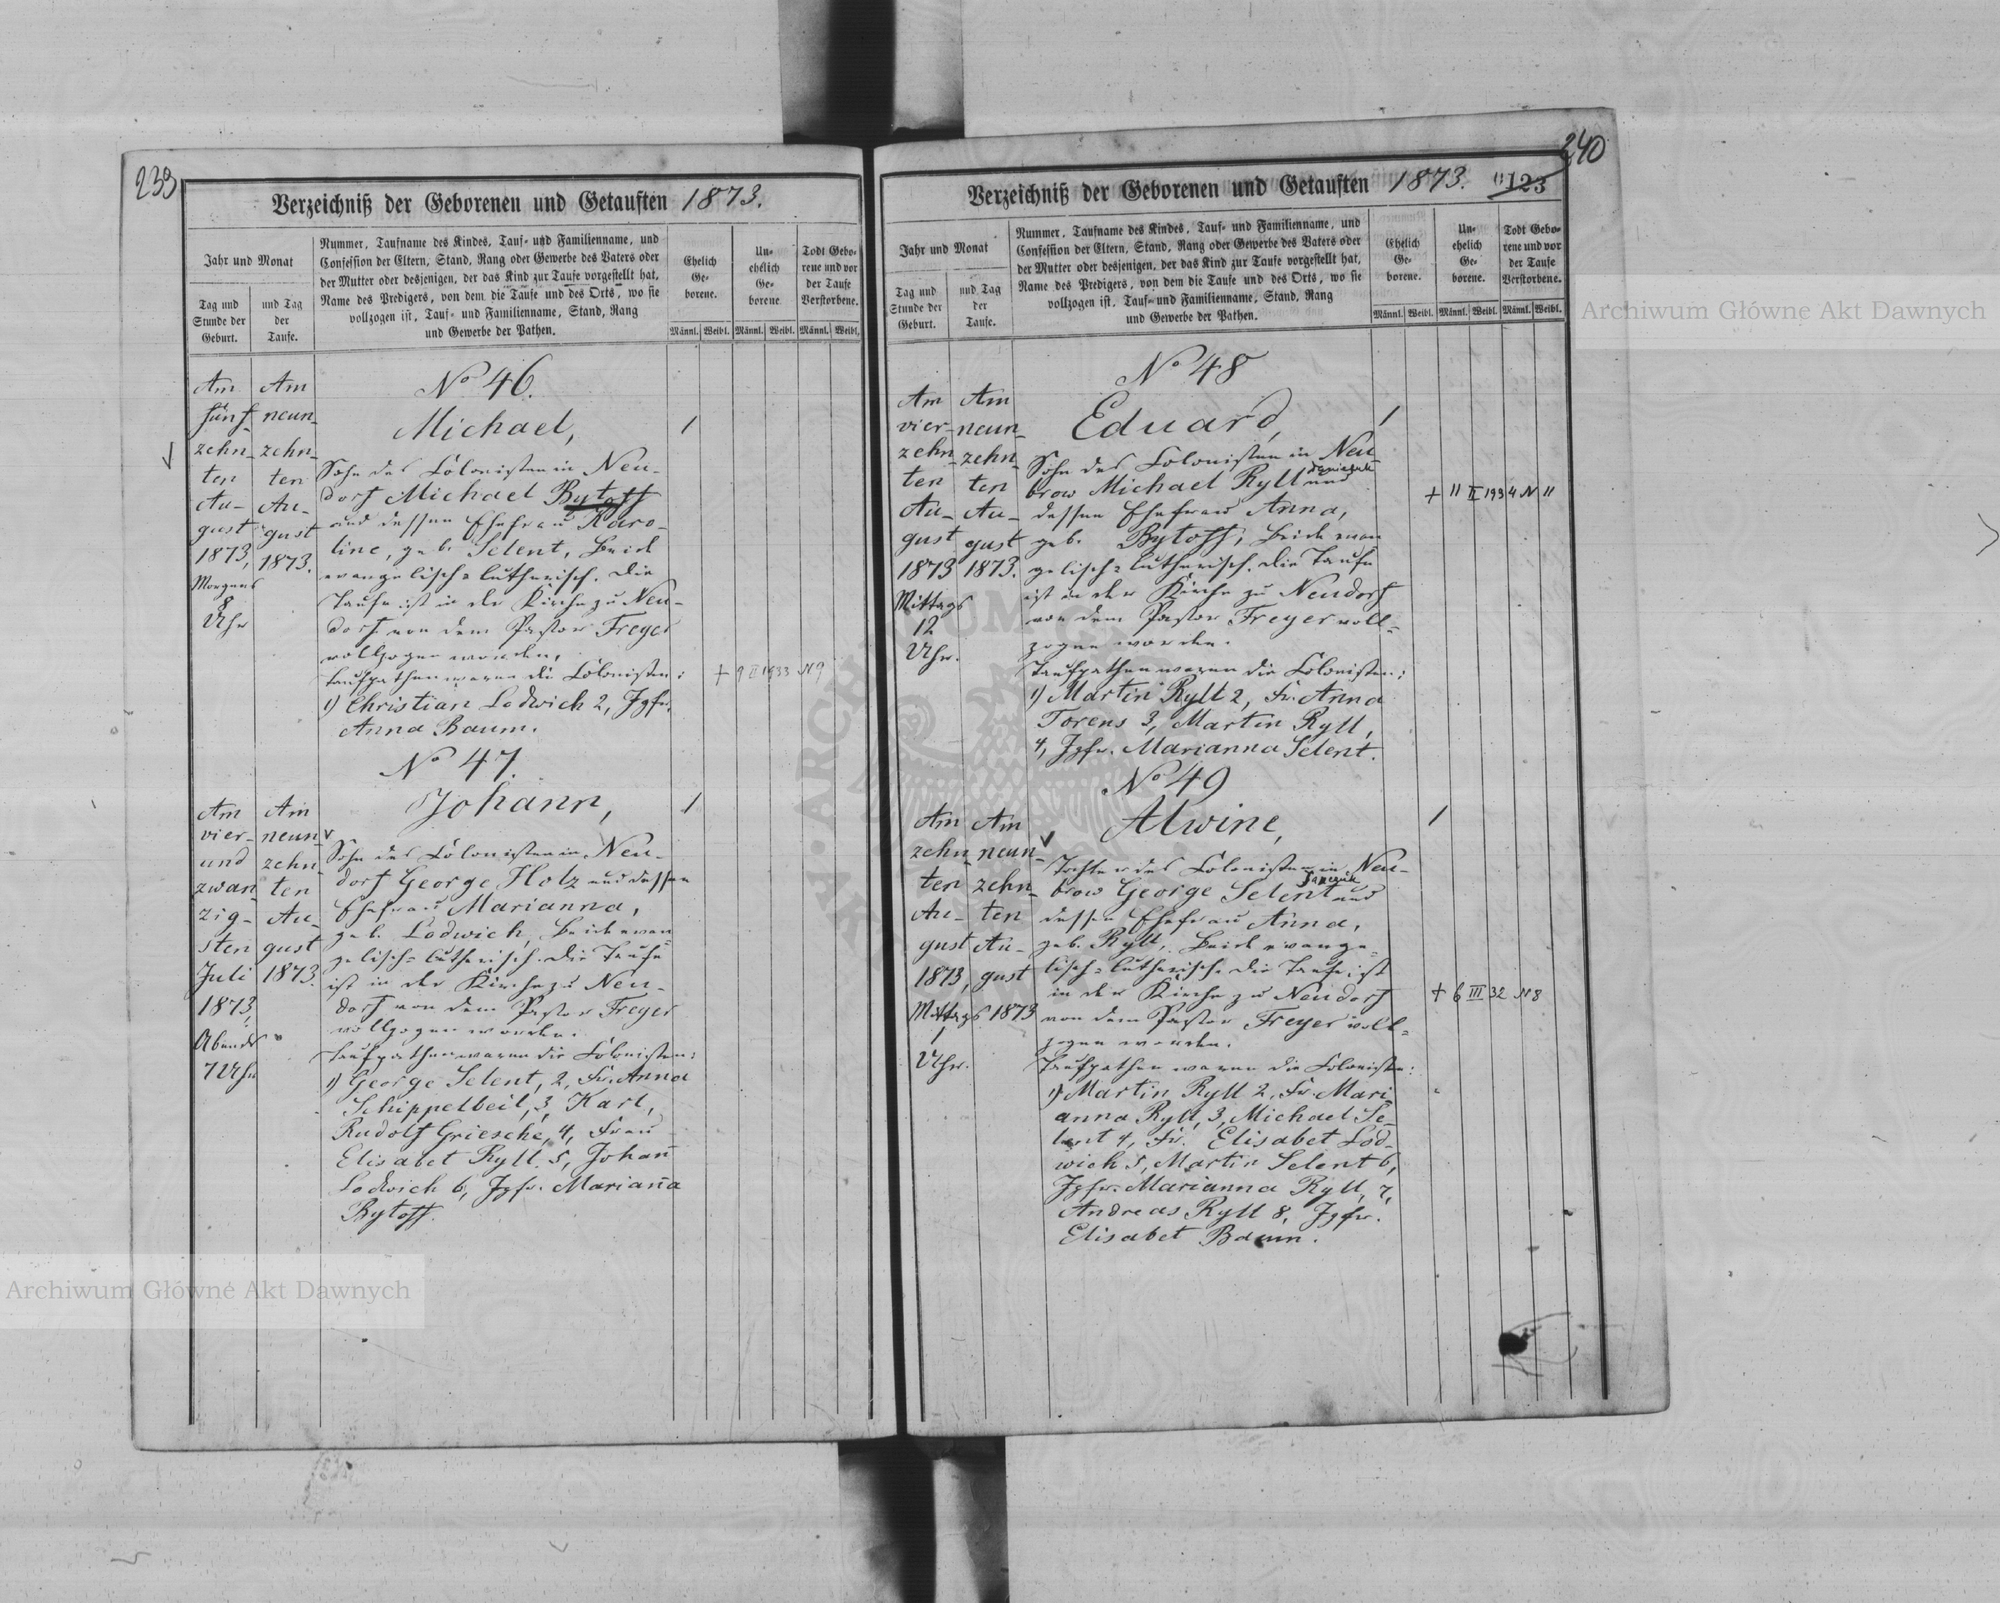 239
Verzeichniß der Geborenen und Getauften 1873.
Jahr und Monat
Tag und
Stunde der
Geburt.
und Tag
der
Taufe.
Nummer, Taufname des Kindes, Tauf- und Familienname, und
Confession der Eltern, Stand, Rang oder Gewerbe des Vaters oder
der Mutter oder desjenigen, der das Kind zur Taufe vorgestellt hat,
Name des Predigers, von dem die Taufe und des Orts, wo sie
vollzogen ist, Tauf- und Familienname, Stand, Rang
und Gewerbe der Pathen.
Ehelich
Ge-
borene.
Un-
ehelich
Ge-
borene
Todt Gebo-
rene und vor
der Taufe
Verstorbene.
Männl. Weibl. Männl. Weibl. Männl. Weibl.
Am
fünf-
zehn-
ten
Au-
gust
1873,
Morgens
8
Uhr
Am
neun-
zehn-
ten
Au-
gust
1873.
No 46.
Michael,
Sohn des Colonisten in Neu-
dorf Michael Bytoff
und dessen Ehefrau Karo-
line, geb. Selent, Beide
evangelisch-lutherisch. Die
Taufe ist in der Kirche zu Neu-
dorf von dem Pastor Freyer
vollzogen worden.
Taufpathen waren die Colonisten:
1) Christian Lodwich 2, Jgfr.
Anna Baum.
1
+ 9 II 1933 N 9
No 47.
Am
vier-
und
zwan
zig-
sten
Juli
1873,
Abends
7 Uhr
Am
neun-
zehn
ten
Au-
gust
1873.
Johann,
Sohn des Colonisten in Neu-
dorf George Holz und dessen
Ehefrau Marianna,
geb. Lodwich, Beide evan
gelisch-lutherisch. Die Taufe
ist in der Kirche zu Neu-
dorf von dem Pastor Freyer
vollzogen worden.
Taufpathen waren die Colonisten:
1) George Selent, 2, Fr. Anna
Schippelbeil, 3, Karl,
Rudolf Griesche, 4, Frau
Elisabet Ryll. 5, Johañ
Lodwich 6, Jgfr. Mariaña
Bytoff.
1
240
Verzeichniß der Geborenen und Getauften 1873.
123
Jahr und Monat
Tag und
Stunde der
Geburt.
und Tag
der
Taufe.
Nummer, Taufname des Kindes, Tauf- und Familienname, und
Confession der Eltern, Stand, Rang oder Gewerbe des Vaters oder
der Mutter oder desjenigen, der das Kind zur Taufe vorgestellt hat,
Name des Predigers, von dem die Taufe und des Orts, wo sie
vollzogen ist, Tauf- und Familienname, Stand, Rang
und Gewerbe der Pathen.
Ehelich
Ge-
borene.
Un-
ehelich
Ge-
borene.
Todt Gebo-
rene und vor
der Taufe
Verstorbene.
Männl. Weibl. Männl. Weibl. Männl. Weibl.
Am
vier-
zehn-
ten
Au-
gust
1873
Mittags
12
Uhr.
Am
neun-
zehn-
ten
Au-
gust
1873.
No 48
Eduard,
Sohn des Colonisten in Neu-
brow Michael Ryll und
dessen Ehefrau Anna,
geb. Bytoff, Beide evan
gelisch-lutherisch. Die Taufe
ist in der Kirche zu Neudorf
von dem Pastor Freyer voll-
zogen worden.
Taufpathen waren die Colonisten:
1) Martin Ryll 2, Fr. Anna
Torens 3, Martin Ryll,
4, Jgfr. Marianna Selent.
1
+ 11 II 1934 N 11
No 49
Am
zehn-
ten
Au-
gust
1873,
Mittags
1
Uhr.
Am
neun-
zehn-
ten
Au-
gust
1873
Alwine,
Tochter des Colonisten in Neu-
brow George Selent und
dessen Ehefrau Anna,
geb. Ryll, Beide evange-
lisch-lutherisch. Die Taufe ist
in der Kirche zu Neudorf
von dem Pastor Freyer voll-
zogen worden.
Taufpathen waren die Colonisten:
1) Martin Ryll 2, Fr. Mari
anna Ryll, 3, Michael Se-
lent 4, Fr. Elisabet Lod-
wich 5, Martin Selent 6,
Jgfr. Marianna Ryll, 7,
Andreas Ryll 8, Jgfr.
Elisabet Baum.
1
+ 6 III 32 N 8
Archiwum Główne Akt Dawnych
Archiwum Główne Akt Dawnych